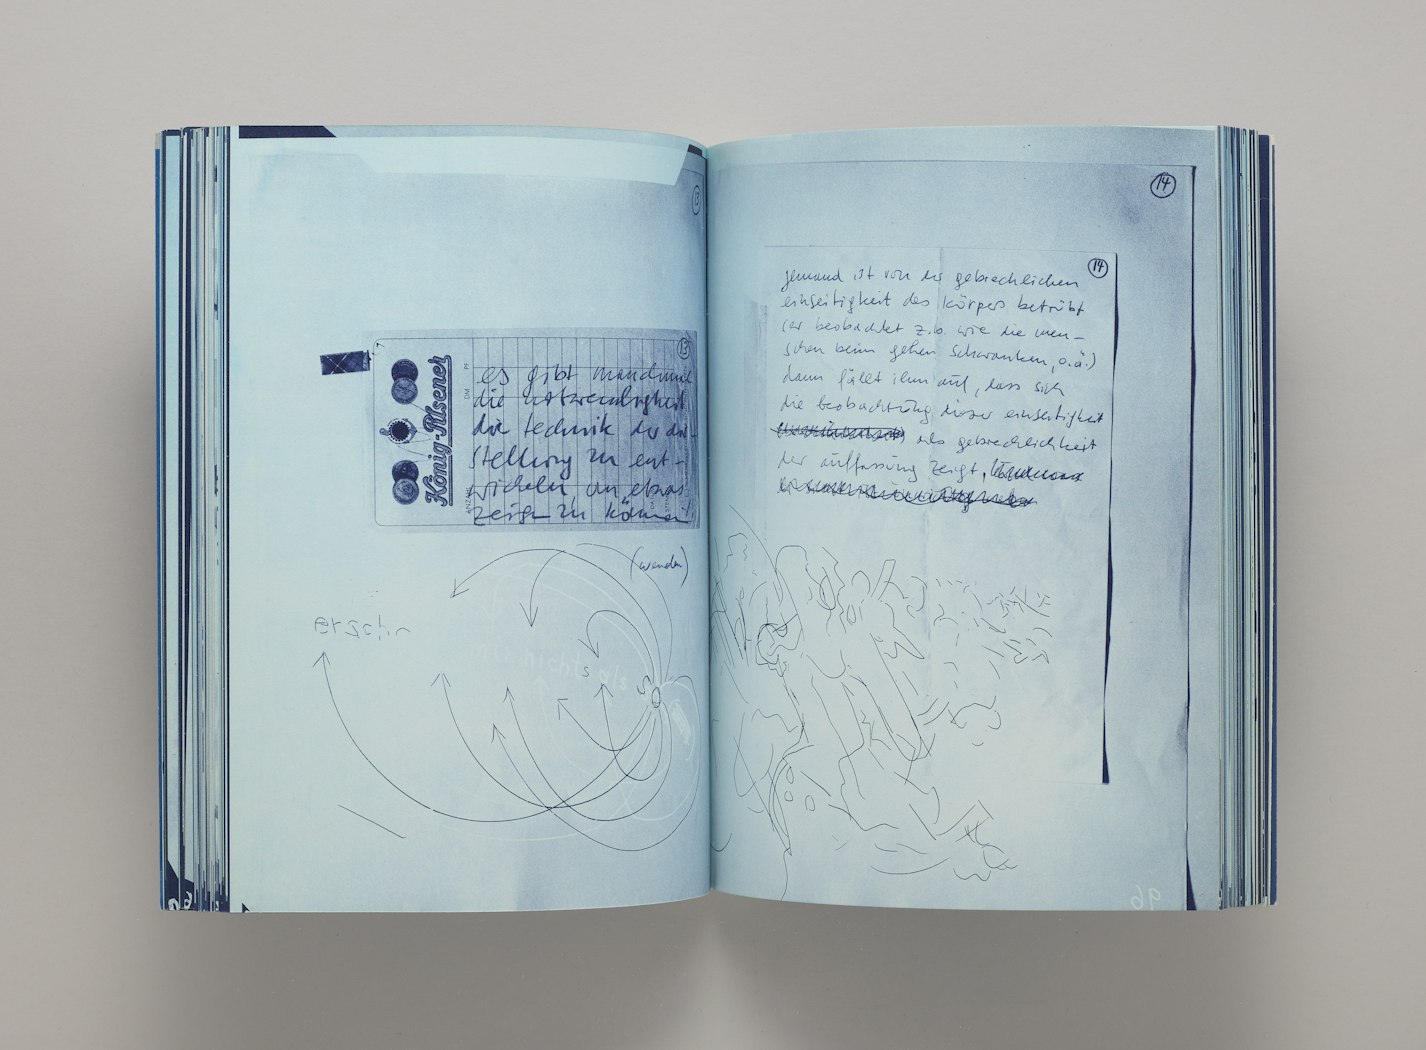 13
13
König-Pilsener
DM
PF
ANZAHL
es gibt manchmal
die notwendigkeit
die technik der dar-
stellung zu ent-
wickeln, um etwas
zeigen zu können!
(wenden)
erschn
nichts als
14
14
jemand ist von der gebrechlichen
einseitigkeit des körpers betrübt
(er beobachtet z.b. wie die men-
schen beim gehen schwanken, o.ä.)
dann fällt ihm auf, dass sich
die beobachtung dieser einseitigkeit
als gebrechlichkeit
der auffassung zeigt,
96